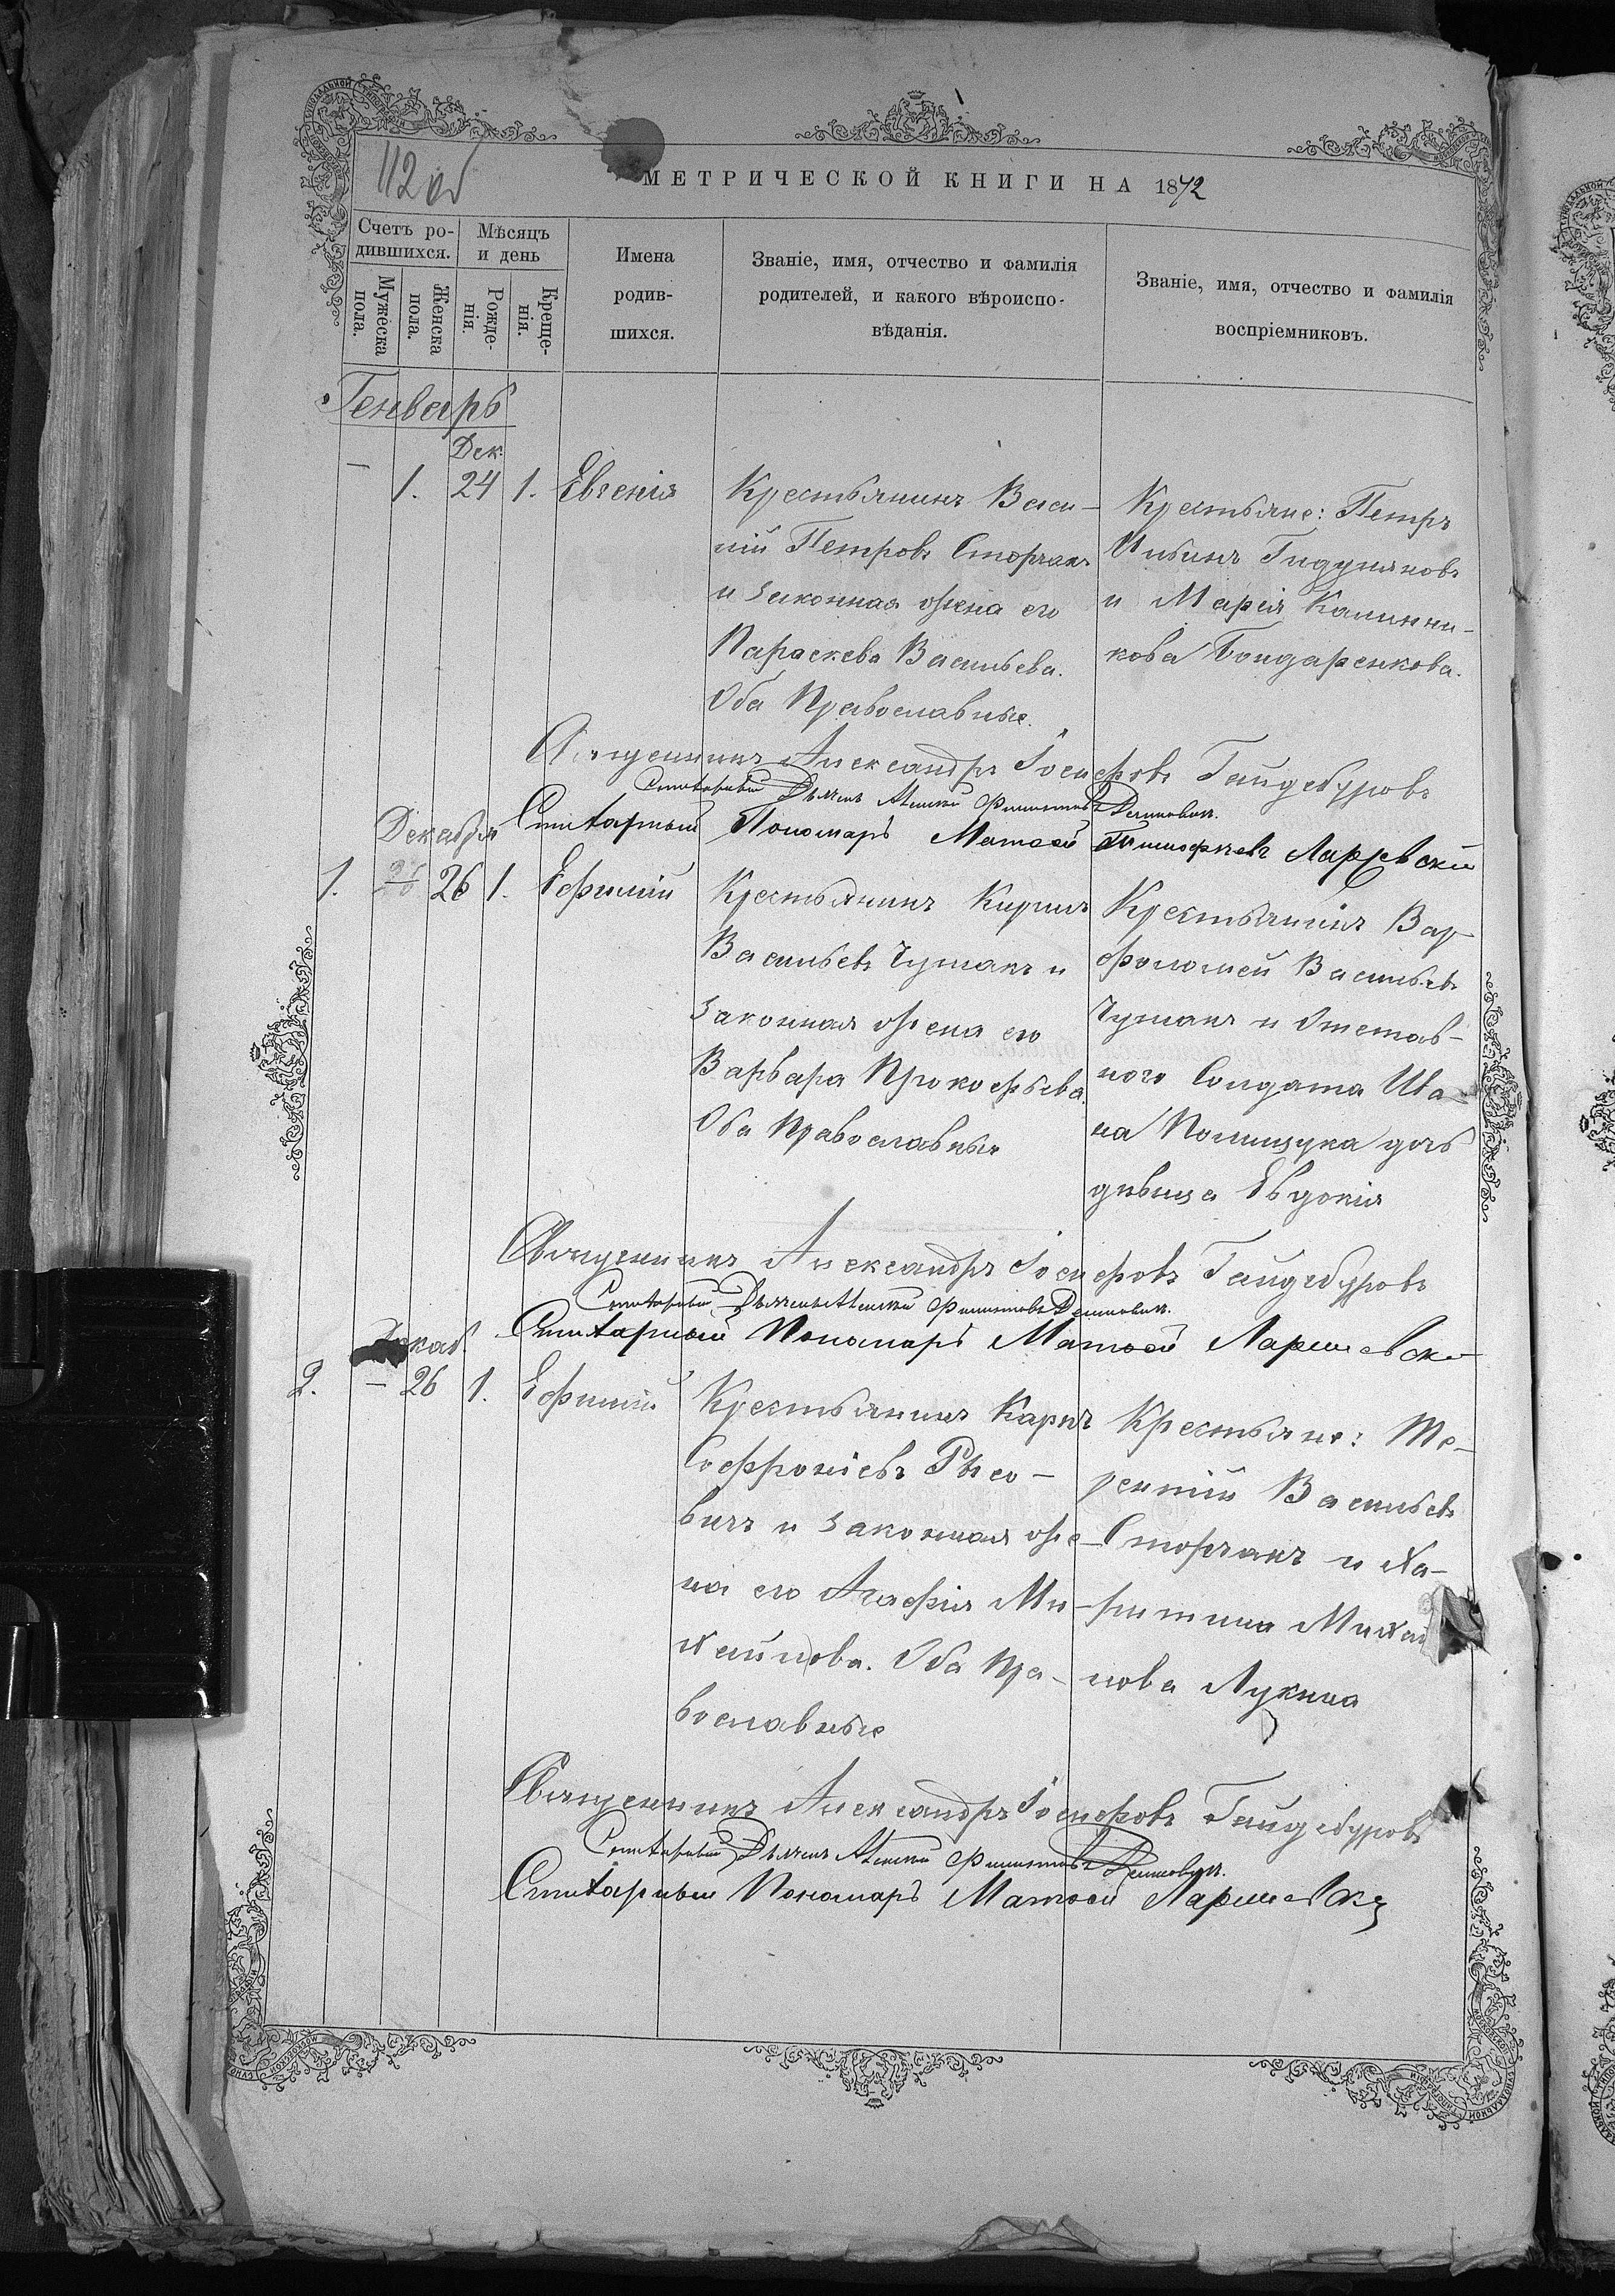 112 об
МЕТРИЧЕСКОЙ КНИГИ НА 1872
Счетъ ро-
дившихся.
Мѣсяцъ
и день
Мужеска
пола.
Женска
пола.
Рожде-
нія.
Креще-
нія.
Имена
родив-
шихся.
Званіе, имя, отчество и фамилія
родителей, и какого вѣроиспо-
вѣданія.
Званіе, имя, отчество и фамилія
воспріемниковъ.
Генварь
Дек.
— 1. 24 1. Евгенія
Крестьянинъ Васи-
лій Петровъ Сторчакъ
и законная жена его
Параскева Васильева.
Оба Православные.
Крестьяне: Петръ
и Марія Калинни-
кова Бондаренкова.
Священникъ Александръ Іосифовъ Гайдебуровъ
Сштатный Дьячекъ Филиповъ
Сштатный Пономарь Матвей Тимофеевъ
Декабря
1. 26 1. Ефимій
Крестьянинъ Кирилъ
Васильевъ Чумакъ и
законная жена его
Варвара Прокофьева.
Оба Православные
Крестьянинъ Вар-
фоломей Васильевъ
Чумакъ и Отстав-
ного Солдата Ива-
на Полищука дочь
дѣвица Евдокія
Священникъ Александръ Іосифовъ Гайдебуровъ
Сштатный Дьячекъ Филиповъ
Сштатный Пономарь Матвей
Декаб.
2. — 26 1. Ефимій
Крестьянинъ Карпъ
Софроніевъ Рысо-
вичъ и законная же-
на его Агафія Ми-
хайлова. Оба Пра-
вославные
Крестьяне: Те-
рентій Васильевъ
Сторчакъ и Ха-
ритина Михай
лова Лукина
Священникъ Александръ Іосифовъ Гайдебуровъ
Сштатный Дьячекъ Филиповъ
Сштатный Пономарь Матвей